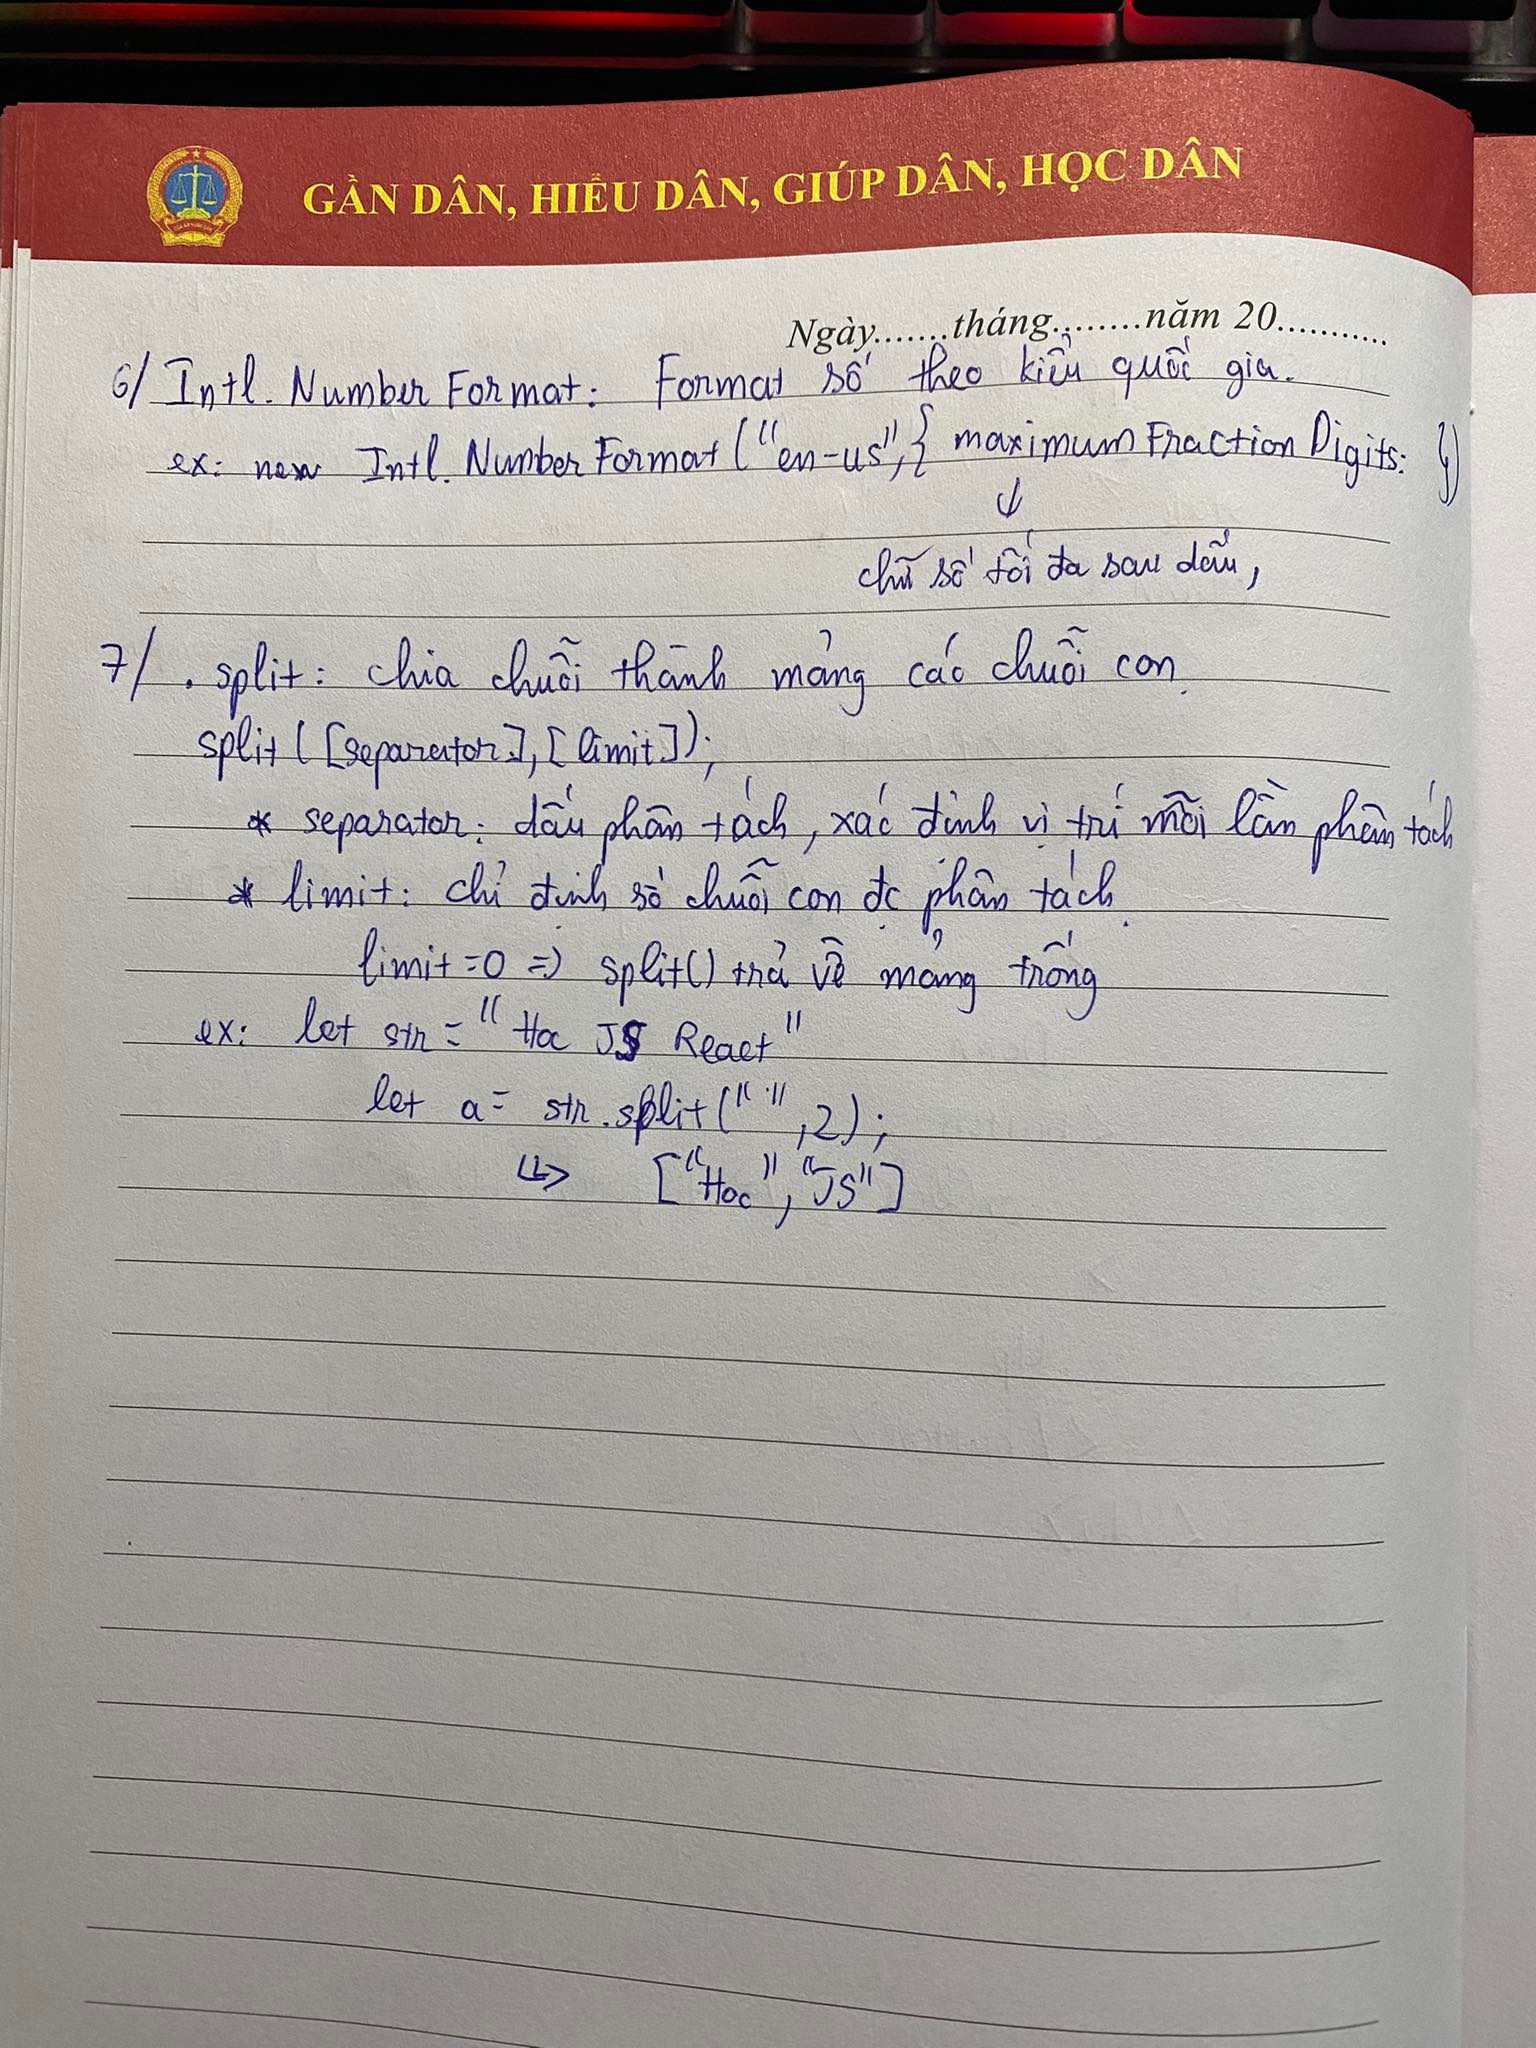 GẦN DÂN, HIỂU DÂN, GIÚP DÂN, HỌC DÂN
Ngày.......tháng.........năm 20...........
6/ Intl. Number Format: Format số theo kiểu quốc gia.
ex: new Intl. Number Format ("en-us", { maximum Fraction Digits: })
↓
chữ số tối đa sau dấu,
7/ . split: chia chuỗi thành mảng các chuỗi con.
split ([separator], [limit]);
* separator: dấu phân tách, xác định vị trí mỗi lần phân tách
* limit: chỉ định số chuỗi con đc phân tách.
limit = 0 => split() trả về mảng trống
ex: let str = " Hoc JS React "
let a = str.split(" ", 2);
↳> ["Hoc", "JS"]